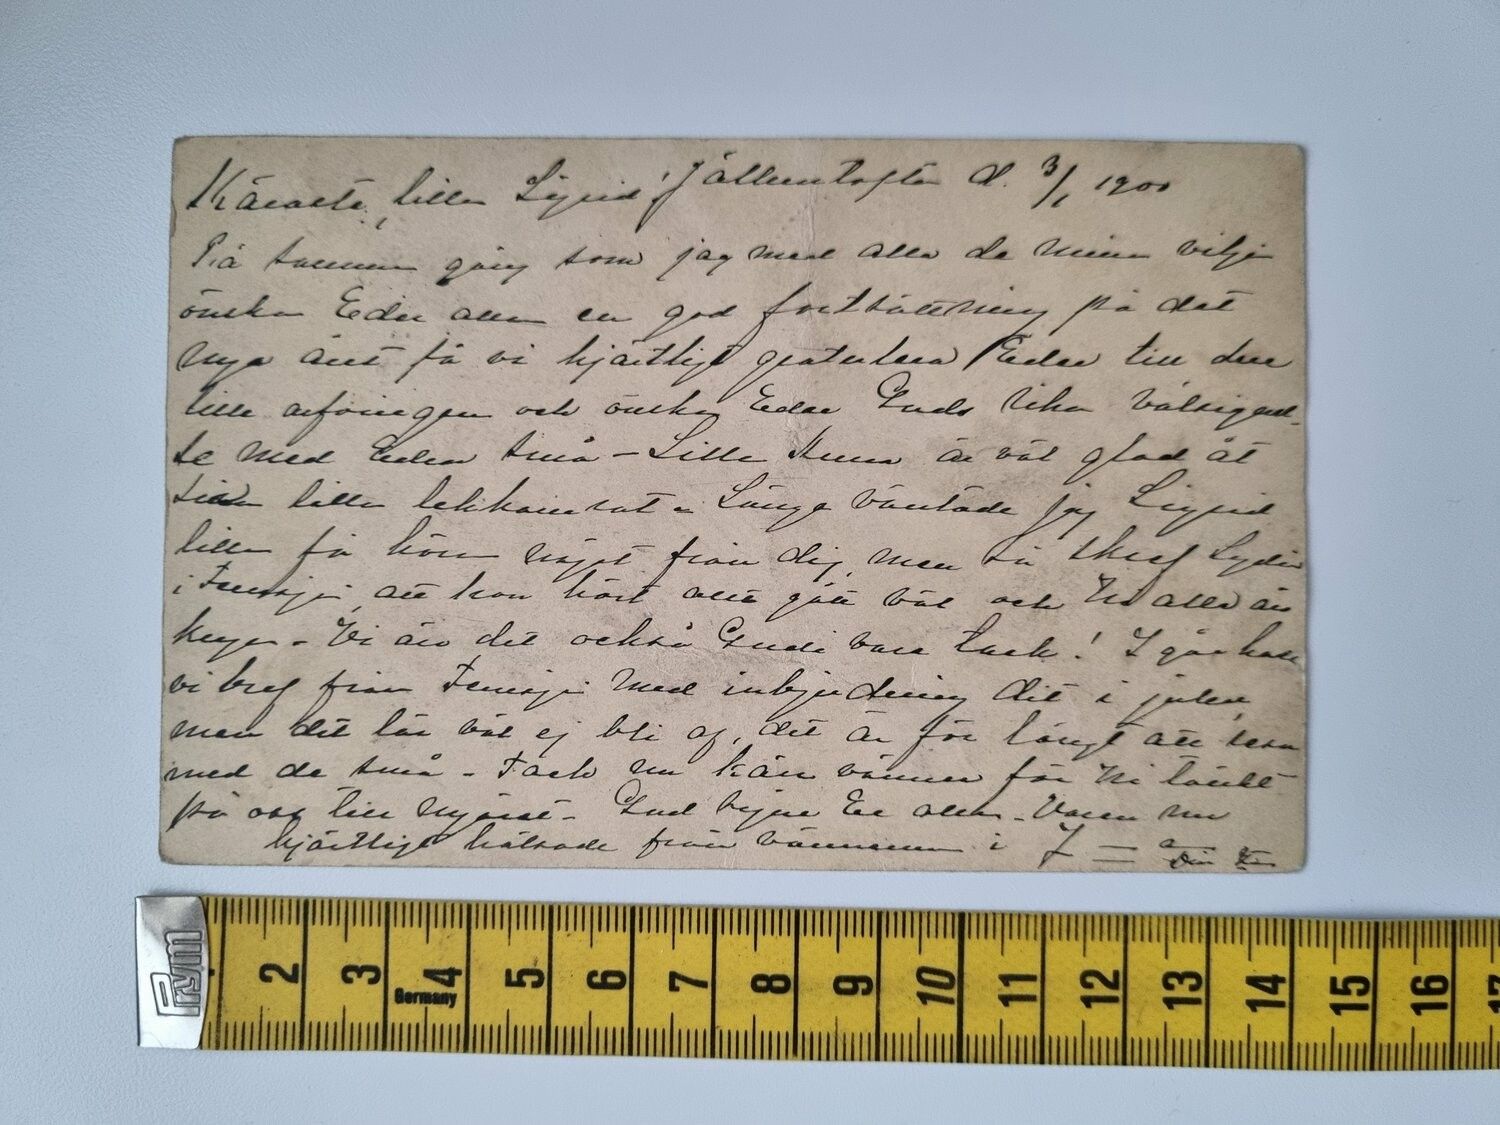 Käraste lilla Sigrid! Jälluntofta d. 3/1 1900
På samma gång som jag med alla de mina vilja
önska Eder alla en god fortsättning på det
nya året få vi hjärtligt gratulera Eder till den
lilla arfvingen och önska Eder Guds rika välsignel-
se med Edra små – Lilla Anna är väl glad åt
sin lilla lekkamrat – Länge väntade jag Sigrid
lilla få höra något från dig, men så skref Lydia
i Femsjö att hon hört allt gått väl och Ni alla äro
krya – Vi äro det också Gudi vare tack! I går hade
vi bref från Femsjö med inbjudning dit i julen,
men det lär väl ej bli af, det är för långt att resa
med de små – Tack nu kära vänner för Ni tänkt
på oss till nyåret – Gud signe Er alla – Varen nu
hjärtligt hälsade från vännerna i J – a
Din
2 3 4 5 6 7 8 9 10 11 12 13 14 15 16 17
Prym
Germany